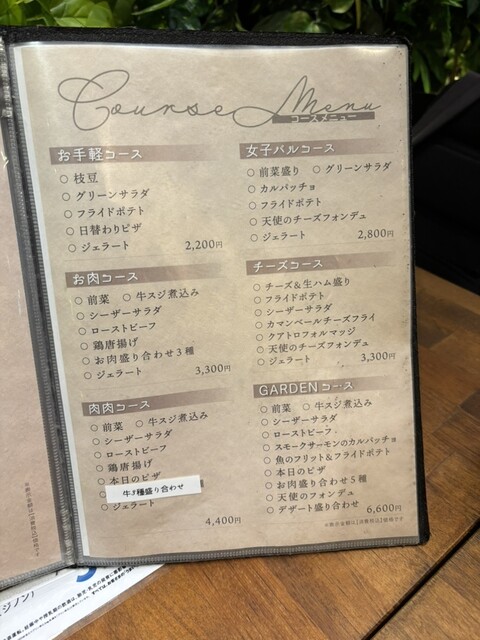 Course Menu
コースメニュー
お手軽コース
○ 枝豆
○ グリーンサラダ
○ フライドポテト
○ 日替わりピザ
○ ジェラート 2,200円
お肉コース
○ 前菜 ○ 牛スジ煮込み
○ シーザーサラダ
○ ローストビーフ
○ 鶏唐揚げ
○ お肉盛り合わせ3種
○ ジェラート 3,300円
肉肉コース
○ 前菜 ○ 牛スジ煮込み
○ シーザーサラダ
○ ローストビーフ
○ 鶏唐揚げ
○ 本日のピザ
牛3種盛り合わせ
○ ジェラート
4,400円
女子バルコース
○ 前菜盛り ○ グリーンサラダ
○ カルパッチョ
○ フライドポテト
○ 天使のチーズフォンデュ
○ ジェラート 2,800円
チーズコース
○ チーズ&生ハム盛り
○ フライドポテト
○ シーザーサラダ
○ カマンベールチーズフライ
○ クアトロフォルマッジ
○ 天使のチーズフォンデュ
○ ジェラート 3,300円
GARDENコース
○ 前菜 ○ 牛スジ煮込み
○ シーザーサラダ
○ ローストビーフ
○ スモークサーモンのカルパッチョ
○ 魚のフリット&フライドポテト
○ 本日のピザ
○ お肉盛り合わせ5種
○ 天使のフォンデュ
○ デザート盛り合わせ 6,600円
※表示金額は【消費税込】価格です